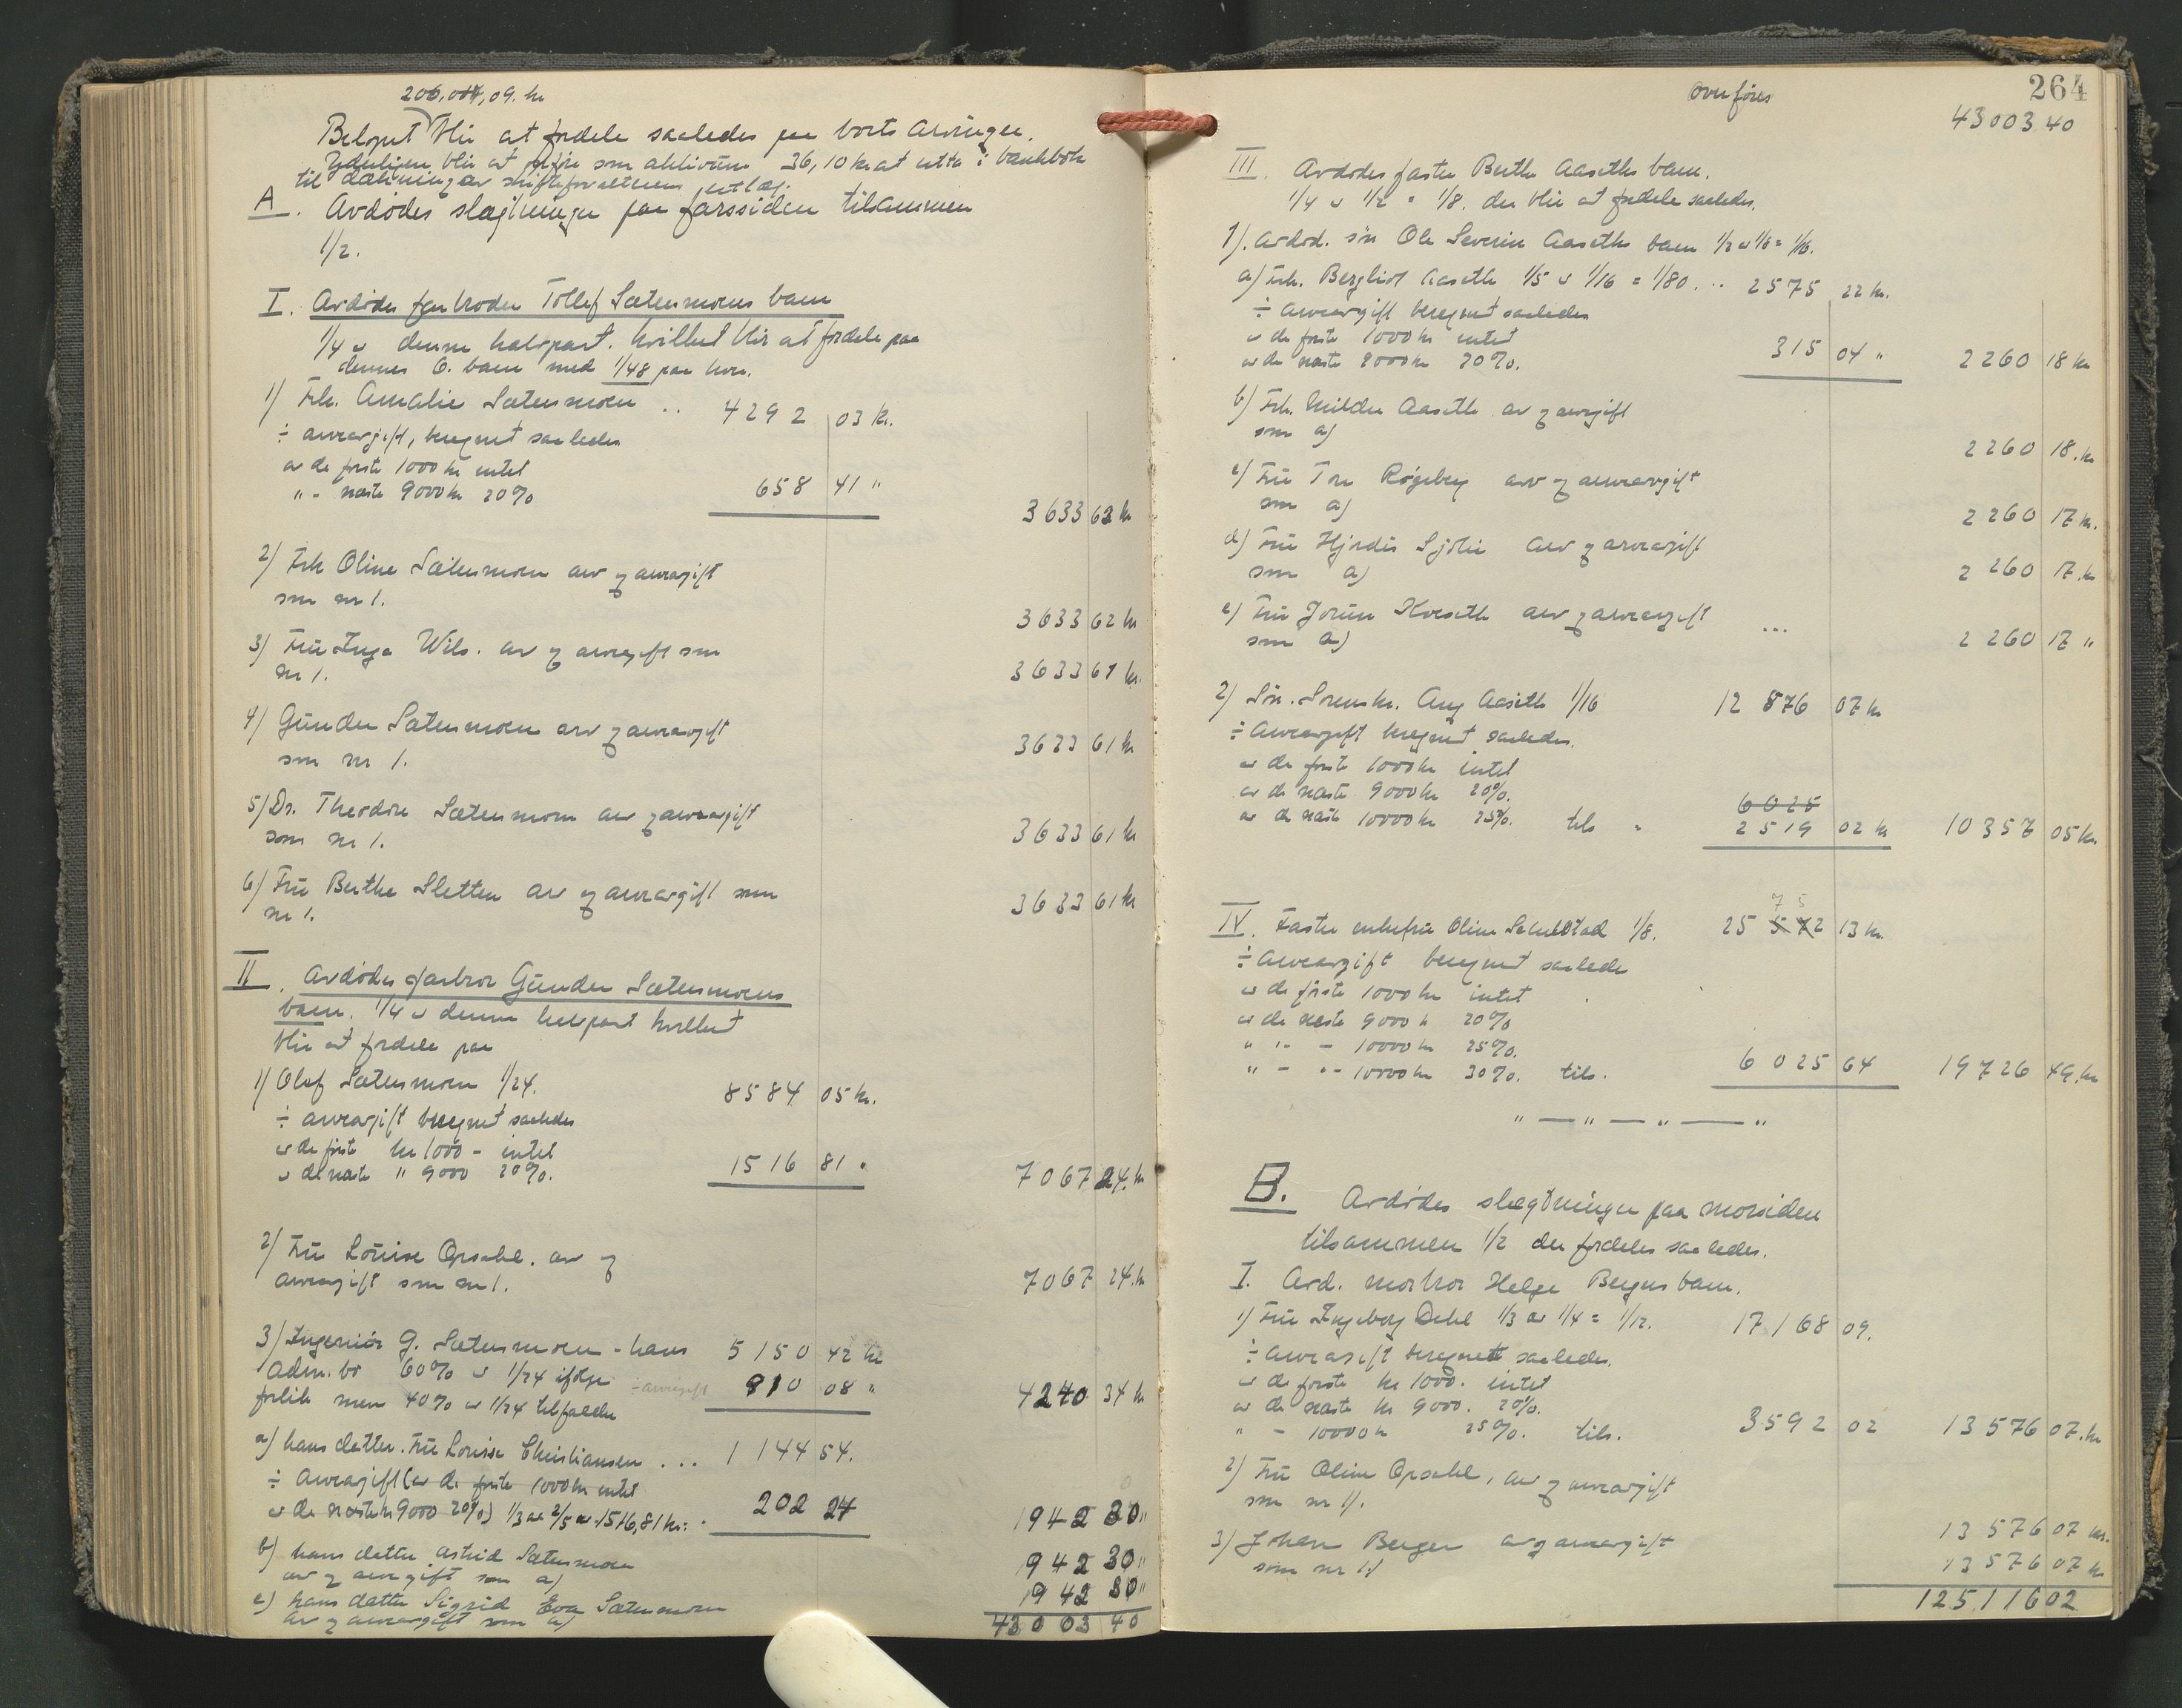 206,017,09. kr
Beløpet blir at fordele saaledes paa borts arvinger.
Yderligere blir at opføre som aktivum 36,10 kr at utta i bankbok
til dækning av skifteforvalterens utlæg.
A. Avdødes slægtninge paa farssiden tilsammen
1/2.
I. Avdødes farbroder Tollef Sætersmoens barn
1/4 av denne halvpart. hvilket blir at fordele paa
dennes 6. barn med 1/48 paa hver.
1) Frk. Amalie Sætersmoen .. 4292 03 kr.
÷ arveavgift, beregnet saaledes
av de første 1000 kr intet
" - næste 9000 kr 20% 658 41 "
3633 62 kr
2) Frk Oline Sætersmoen arv og arveavgift
som nr 1.
3633 62 kr
3) Frü Inga Wils. arv og arveavgift som
nr 1.
3633 61 kr.
4) Günder Sætersmoen arv og arveavgift
som nr 1.
3633 61 kr
5) Dr. Theodor Sætersmoen arv og arveavgift
som nr 1.
3633 61 kr
6) Frü Berthe Sletten arv og arveavgift som
nr 1.
3633 61 kr
II. Avdødes farbror Günder Sætersmoens
barn. 1/4 av denne halvpart hvilket
blir at fordele paa
1) Olaf Sætersmoen 1/24. 8584 05 kr.
÷ arveavgift beregnet saaledes
av de første kr 1000 - intet
av de næste " 9000 20%. 1516 81 "
7067 24. kr
2) Frü Loüise Opsahl. arv og
arveavgift som nr 1.
7067 24. kr
3) Ingeniør G. Sætersmoen - hans 5150 42 kr
adm. bo 60% av 1/24 ifølge ÷ arveavgift 910 08 "
4240 34 kr
forlik men 40% av 1/24 tilfalder
a) hans datter. Frü Louise Christiansen ... 1144 54.
÷ Arveavgift (av de første 1000 kr intet
av de næste kr 9000 20%) 1/3 av 2/5 av 1516,81 kr: . 202 24
942 30 "
b) hans datter Astrid Sætersmoen
arv og arveavgift som a)
942 30 "
c) hans datter Sigrid Eva Sætersmoen
arv og arveavgift som a)
942 30 "
43003 40
264
Overføres
43003 40
III. Avdødes faster Berthe Aaseths barn.
1/4 av 1/2 = 1/8. der blir at fordele saaledes.
1). avdød. søn Ole Severin Aaseths barn 1/2 av 1/8 = 1/16.
a) Frk. Bergliot Aaseth 1/5 av 1/16 = 1/80. .. 2575 22 kr.
÷ arveavgift beregnet saaledes
av de første 1000 kr intet
av de næste 9000 kr 20%. 315 04 " 2260 18 kr
b) Frk. Hilder Aaseth arv og avgift
som a)
2260 18. kr
c) Frü Tore Røgeberg arv og arveavgift
som a)
2260 17 kr.
d) Frü Hjørdis Sjølie arv og arveavgift
som a)
2260 17. kr
e) Frü Jorün Korseth arv og arveavgift ...
som a)
2260 17 "
2) Søn. Sorenskr. Aug Aaseth 1/16 12876 07 kr
÷ Arveavgift beregnet saaledes.
av de første 1000 kr intet
av de næste 9000 kr 20%.
6025
av de næste 10000 kr 25%. tils " 2519 02 kr 10357 05 kr.
7 5
IV. Faster enkefrü Oline 1/8. 25 572 13 kr.
÷ Arveavgift beregnet saalede
av de første 1000 kr intet
av de næste 9000 kr 20%
" " - 10000 kr 25%.
" - " - 10000 kr 30%. tils. 6025 64 19726 49. kr
" — " — " — "
B. Avdødes slægtninger paa morsiden
tilsammen 1/2 der fordeles saaledes.
I. Avd. morbror Helge Bergers barn.
1) Frü Ingeborg Dehl 1/3 av 1/4 = 1/12. 17168 09.
÷ Arveavgift beregnet saaledes.
av de første kr 1000. intet
av de næste kr 9000. 20%.
" - 10000 kr 25%. tils. 3592 02 13576 07. kr
2) Frü Oline Opsahl, arv og arveavgift
som nr 1).
13576 07 kr.
3) Johan Berger arv og arveavgift
som nr 1)
13576 07 kr
125116 02